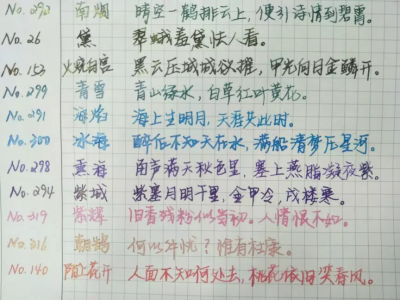 No.292 南烟 晴空一鹤排云上,便引诗情到碧霄。
No.26 黛 翠娥羞黛怯人看。
No.153 火烧白宫 黑云压城城欲摧,甲光向日金鳞开。
No.299 青雪 青山绿水,白草红叶黄花。
No.291 海焰 海上生明月,天涯共此时。
No.300 冰海 醉后不知天在水,满船清梦压星河。
No.298 云海 角声满天秋色里,塞上燕脂凝夜紫。
No.294 紫城 紫塞月明千里,金甲冷,戍楼寒。
No.319 紫 旧香残粉似当初。人情恨不如。
No.316 朝鹤 何以解忧?唯有杜康。
No.140 陌上花开 人面不知何处去,桃花依旧笑春风。